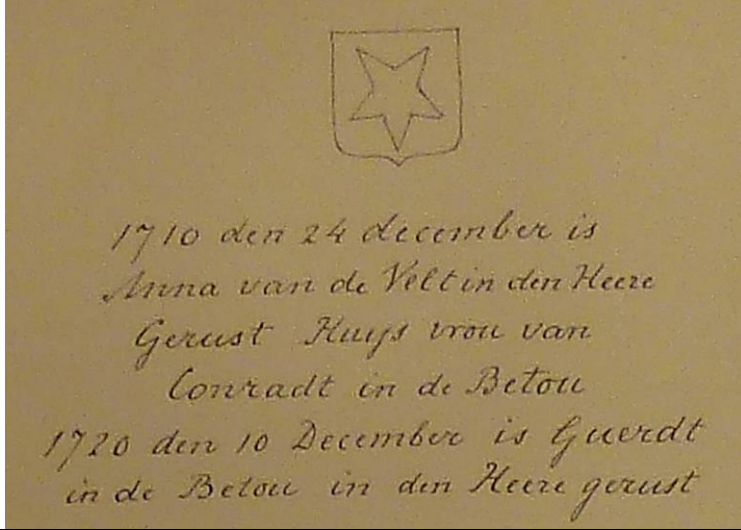 1710 den 24 december is
Anna van de Velt in den Heere
Gerust Huijs vrou van
Conradt in de Betou
1720 den 10 December is Guerdt
in de Betou in den Heere gerust